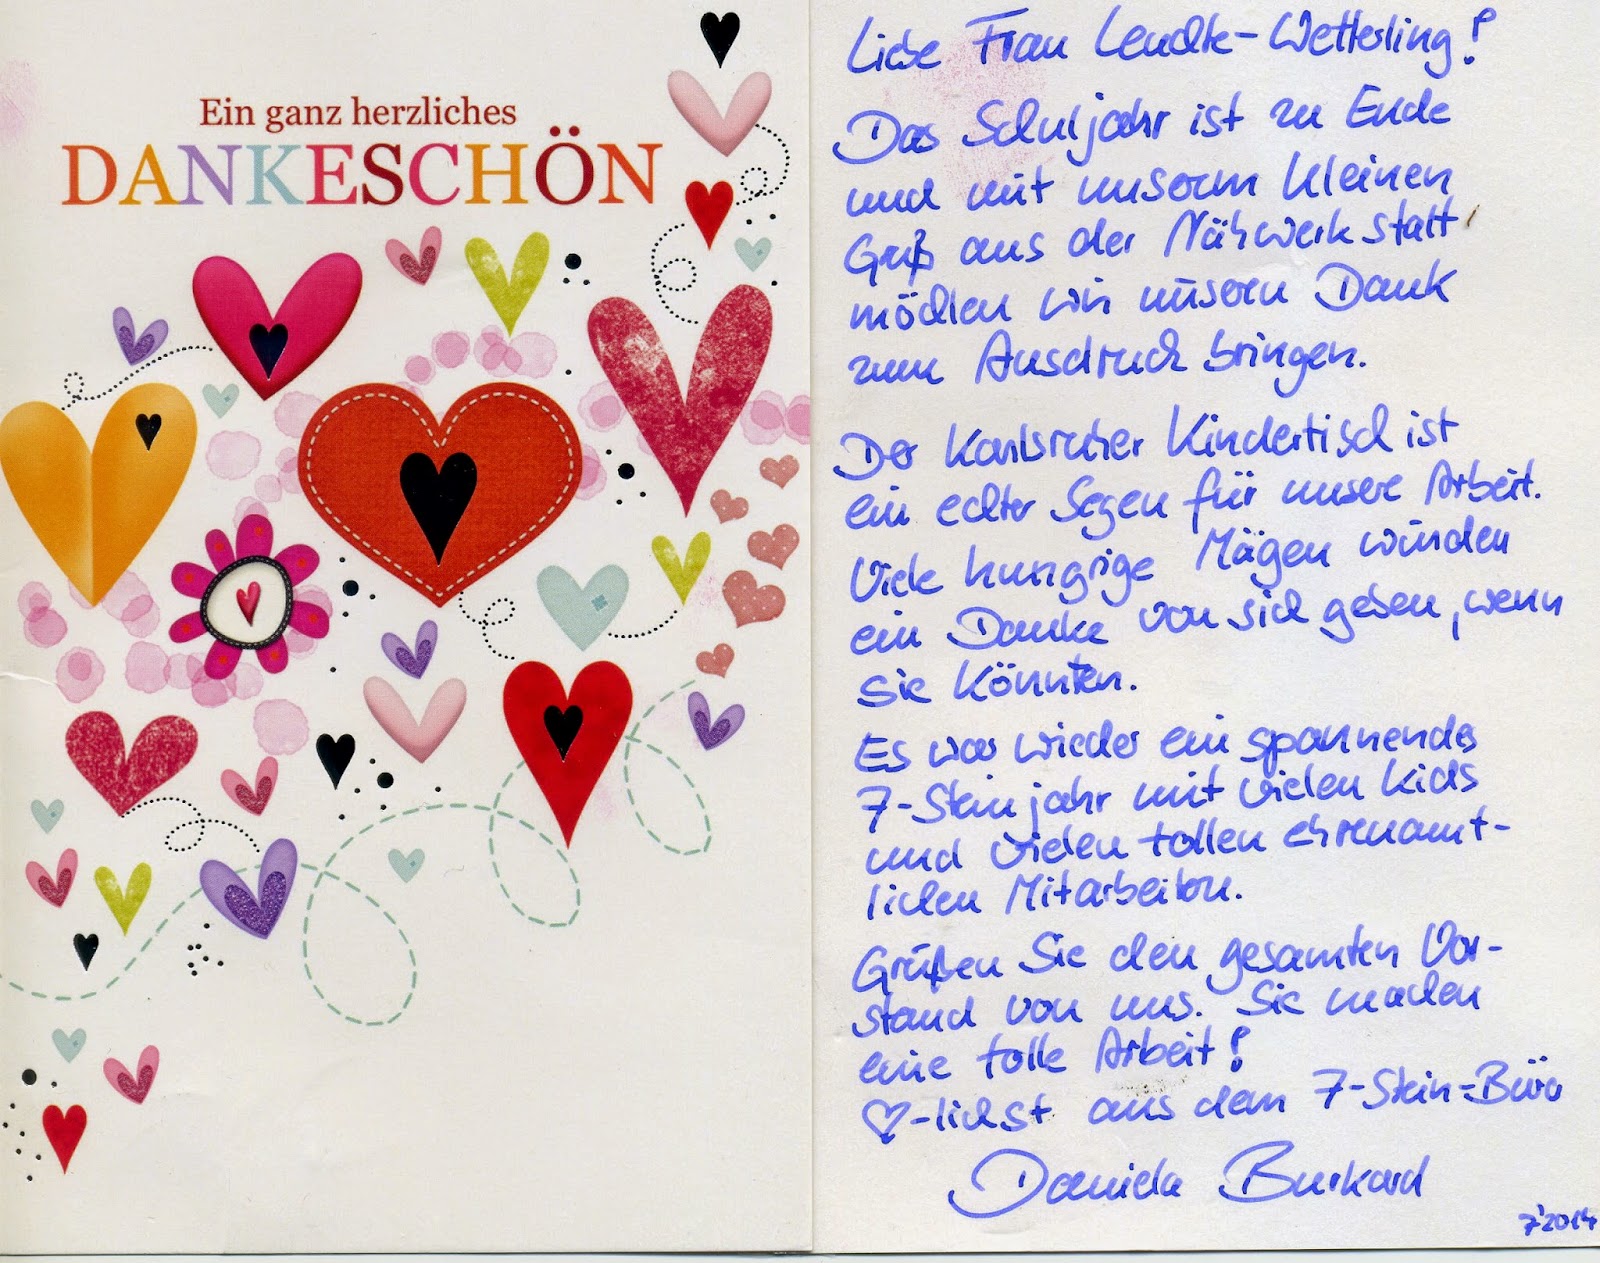 Ein ganz herzliches
DANKESCHÖN
Liebe Frau Leuchte-Wetterling!
Das Schuljahr ist zu Ende
und mit unserem kleinen
Gruß aus der Nähwerkstatt
möchten wir unseren Dank
zum Ausdruck bringen.
Der Karlsruher Kindertisch ist
ein echter Segen für unsere Arbeit.
Viele hungrige Mägen würden
ein Danke von sich geben, wenn
sie könnten.
Es war wieder ein spannendes
7-Steinjahr mit vielen Kids
und vielen tollen ehrenamt-
lichen Mitarbeitern.
Grüßen Sie den gesamten Vor-
stand von uns. Sie machen
eine tolle Arbeit!
♡-lichst aus dem 7-Stein-Büro
Daniela Burkard
7'2014